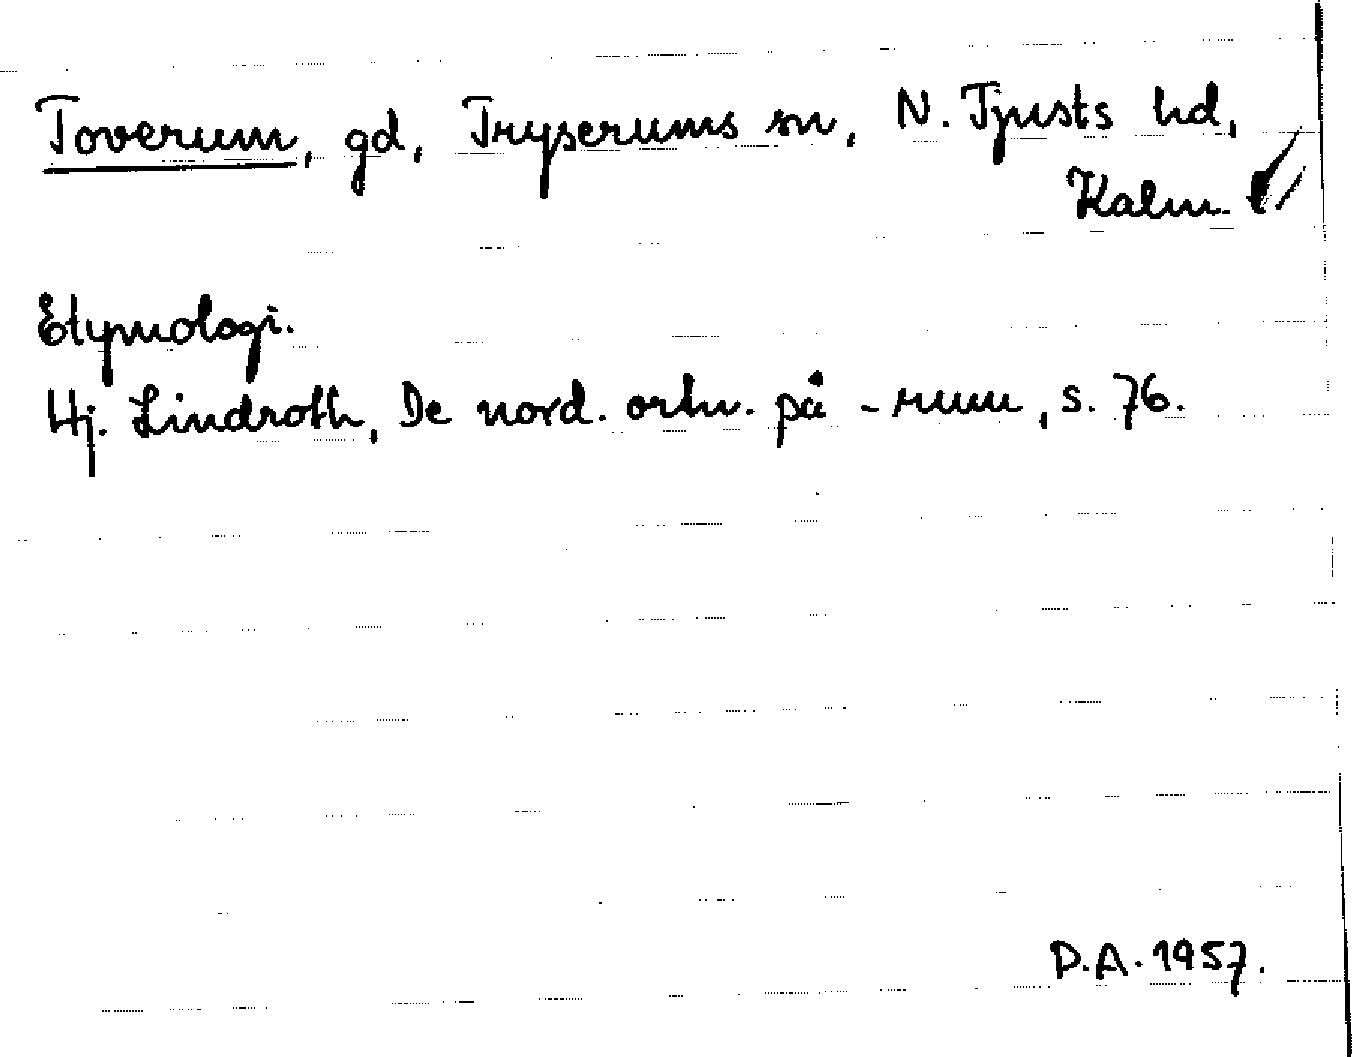 Toverum, gd, Tryserums sn, N. Tjusts hd,
Kalm.
Etymologi.
Hj. Lindroth, De nord. ortn. på -rum, s. 76.
D.A. 1957.